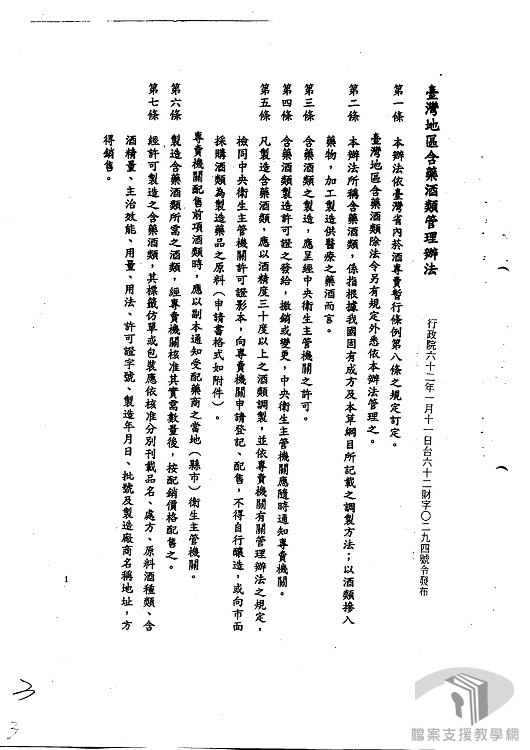 臺灣地區含藥酒類管理辦法
行政院六十二年一月十一日台六十二財字〇二九四號令發布
第一條　本辦法依臺灣省內菸酒專賣暫行條例第八條之規定訂定。
臺灣地區含藥酒類除法令另有規定外悉依本辦法管理之。
第二條　本辦法所稱含藥酒類，係指根據我國固有成方及本草綱目所記載之調製方法；以酒類摻入
藥物，加工製造供醫療之藥酒而言。
第三條　含藥酒類之製造，應呈經中央衛生主管機關之許可。
第四條　含藥酒類製造許可證之發給，撤銷或變更，中央衛生主管機關應隨時通知專賣機關。
第五條　凡製造含藥酒類，應以酒精度三十度以上之酒類調製，並依專賣機關有關管理辦法之規定，
檢同中央衛生主管機關許可證影本，向專賣機關申請登記、配售，不得自行釀造，或向市面
採購酒類為製造藥品之原料（申請書格式如附件）。
專賣機關配售前項酒類時，應以副本通知受配藥商之當地（縣市）衛生主管機關。
第六條　製造含藥酒類所需之酒類，經專賣機關核准其實需數量後，按配銷價格配售之。
第七條　經許可製造之含藥酒類，其標籤仿單或包裝應依核准分別刊載品名、處方、原料酒種類、含
酒精量、主治效能、用量、用法、許可證字號、製造年月日、批號及製造廠商名稱地址，方
得銷售。
1
3
3
檔案支援教學網